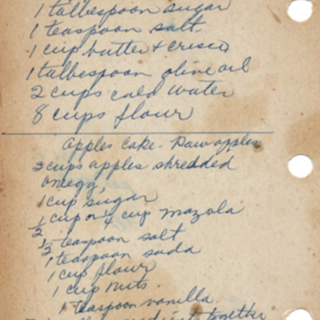 1 talbespoon sugar
1 teaspoon salt
1 cup butter & crisco
1 talbespoon olive oil
2 cups cold water
8 cups flour
Apples Cake - Raw apples
3 cups apples shredded
1 cup sugar
1/2 cup or cup mazola
1/2 teaspoon salt
1/2 teaspoon soda
1 cup flour
1 cup nuts.
1 teaspoon vanilla
together